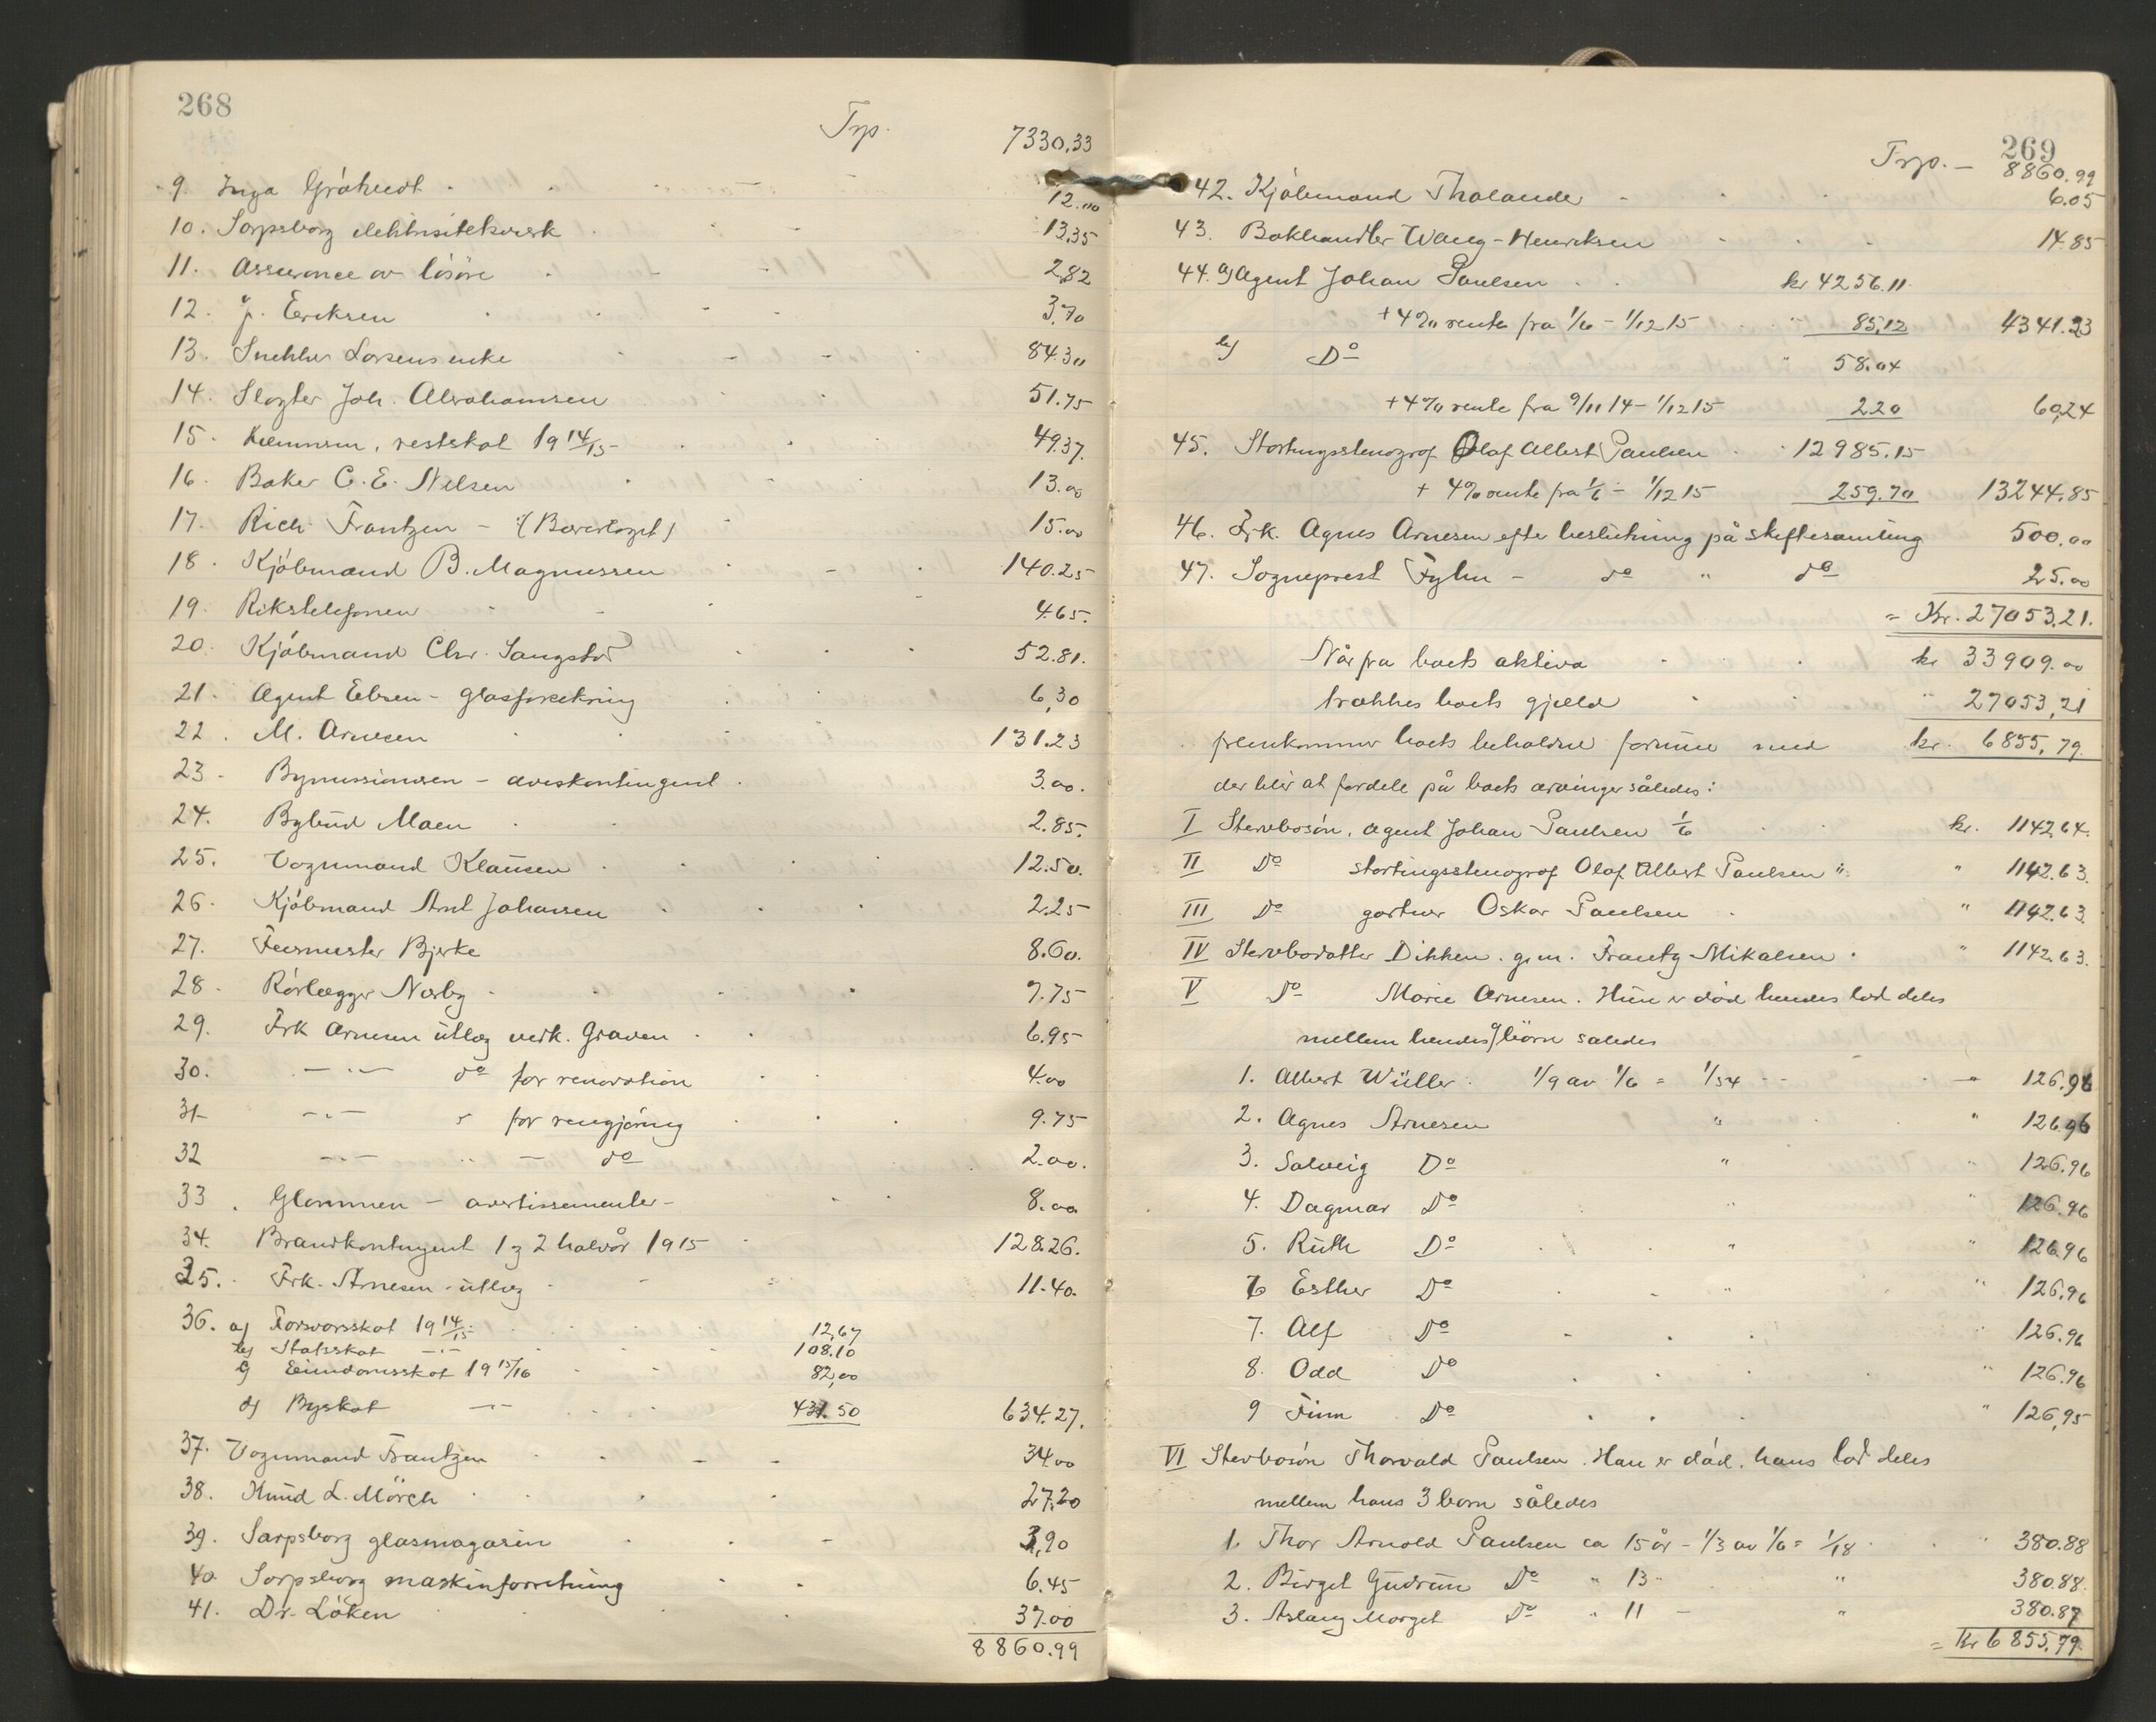 268
Trp. 7330,33
9. Inga Gråhudt 12.00
10. Sarpsborg elektrisitetsverk 13,35
11. Assurance av lösöre 2,82
12. J. Eriksen 3,70
13. Snekker Larsens enke 84.30
14. Slagter Joh. Abrahamsen 51.75
15. Kemneren, restskat 1914/15 49.37.
16. Baker C. E. Nilsen 13.00
17. Rich. Frantzen - (Bærerlaget) 15.00
18. Kjöbmand B. Magnussen 140.25
19. Rikstelefonen 4.65.
20. Kjöbmand Chr. Sangstad 52.81.
21. Agent Ebsen - glasforsikring 6,30
22. M. Arnesen 131.23
23. Bymissionæren - aviskontingent 3.00.
24. Bybud Moen 2.85.
25. Vognmand Klausen 12.50.
26. Kjöbmand Ant. Johansen 2.25
27. Feiermester Bjerke 8.60.
28. Rörlægger Nærby 7.75
29. Frk Arnesen utlæg vedk. Graven 6.95
30. -"- do for renovation 4.00
31 -"- " for rengjöring 9.75
32 -"- " - do 2.00.
33. Glommen - avertissementer - 8.00
34. Brandkontingent 1 og 2 halvår 1915 128.26.
35. Frk. Arnesen - utlæg 11.40.
36. a) Forsvarsskat 1914/15 12,67
b) Statsskat -"- 108.10
c) Eiendomsskat 1915/16 82,00
d) Byskat -"- 431.50 634.27.
37. Vognmand Frantzen 34.00
38. Knud L. Mörch 27.20
39. Sarpsborg glasmagasin 3,90
40 Sarpsborg maskinforretning 6.45
41. Dr. Löken 37.00
8860.99
269
Trp. - 8860.99
42. Kjöbmand Tholander 6.05
43. Bokhandler Wang-Henriksen 14.85
44. a) Agent Johan Paulsen kr 4256.11.
+ 4% rente fra 1/6 - 1/12 15 " 85,12 4341.23
b) Do " 58.04
+ 4% rente fra 9/11 14 - 1/12 15 2.20 60,24
45. Stortingsstenograf Olaf Albert Paulsen 12985.15
+ 4% rente fra 1/6 - 1/12 15 259.70 13244,85
46. Frk. Agnes Arnesen efter beslutning på skiftesamling 500.00
47. Sogneprest Fyhn - do " do 25.00
= Kr. 27053,21.
Når fra boets aktiva kr 33909.00
trækkes boets gjæld " 27053,21
fremkommer boets beholdne formue med kr. 6855,79.
der blir at fordele på boets arvinger således:
I Stervbosön, agent Johan Paulsen 1/6 kr. 1142,64.
II Do stortingsstenograf Olaf Albert Paulsen " " 1142.63.
III Do gartner Oskar Paulsen " 1142.63.
IV Stervbodatter Dikken. g.m. Frantz Mikalsen. " 1142.63.
V Do Marie Arnesen. Hun er död hendes lod deles
mellem hendes 9 börn saledes
1. Albert Wüller. 1/9 av 1/6 = 1/54 - - 126.96
2. Agnes Arnesen " " 126.96
3. Solveig Do " " 126.96
4. Dagmar Do " " 126.96
5. Ruth Do " " 126.96
6 Esther Do " " 126.96
7. Alf Do 126.96
8. Odd Do " 126.96
9 Finn Do " 126,95
VI Stervbosön Thorvald Paulsen. Han er död. hans lod deles
mellem hans 3 born således
1. Thor Arnold Paulsen ca 15 år - 1/3 av 1/6 = 1/18 " 380.88
2. Birgit Gudrun Do " 13 - " 380.88.
3. Aslaug Margit Do " 11 - " 380.87
= Kr 6855,79.